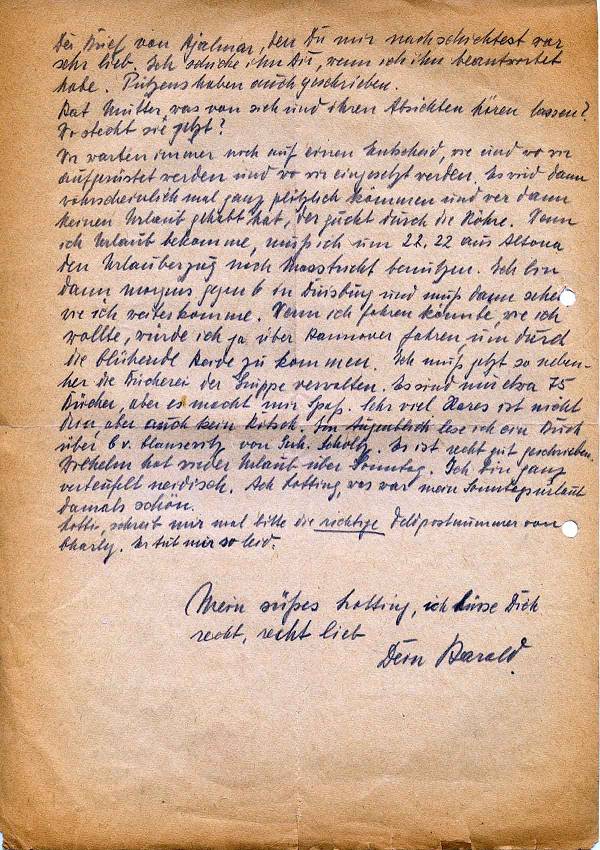 Der Brief von Hjalmar, den Du mir nachschicktest war
sehr lieb. Ich schicke ihn Dir, wenn ich ihn beantwortet
habe. Pützens haben auch geschrieben.
Hat Mutter, was von sich und ihren Absichten hören lassen?
Wo steckt sie jetzt?
Wir warten immer noch auf einen Entscheid, wie und wo wir
aufgerüstet werden und wo wir eingesetzt werden. Es wird dann
wahrscheinlich mal ganz plötzlich kommen und wer dann
keinen Urlaub gehabt hat, der guckt durch die Röhre. Wenn
ich Urlaub bekomme, muß ich um 22.22 aus Altona
den Urlauberzug nach Maastricht benutzen. Ich bin
dann morgens gegen 6 in Duisburg und muß dann sehen
wie ich weiterkomme. Wenn ich fahren könnte, wie ich
wollte, würde ich ja über Hannover fahren um durch
die blühende Heide zu kommen. Ich muß jetzt so neben-
her die Bücherei der Gruppe verwalten. Es sind nur etwa 75
Bücher, aber es macht mir Spaß. Sehr viel Rares ist nicht
drin, aber auch kein Kitsch. Im Augenblick lese ich ein Buch
über C. v. Clausewitz von Gerh. Scholtz. Es ist recht gut geschrieben.
Wilhelm hat wieder Urlaub über Sonntag. Ich bin ganz
verteufelt neidisch. Ach Lotting, was war mein Sonntagsurlaub
damals schön.
Lotti, schreib mir mal bitte die richtige Feldpostnummer von
Charly. Er tut mir so leid.
Mein süßes Lotting, ich küsse Dich
recht, recht lieb
Dein Harald.